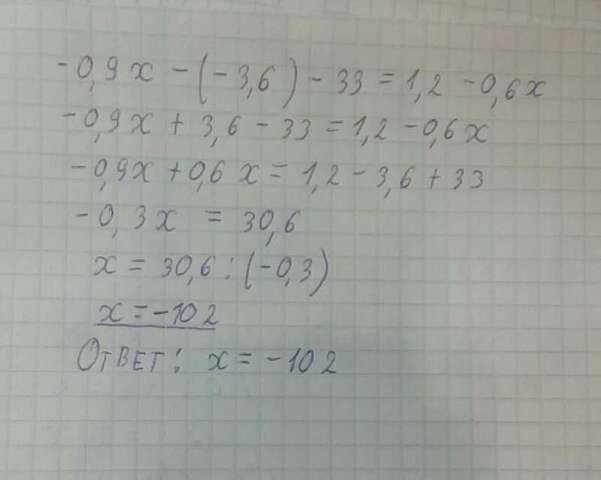 -0,9x - (-3,6) - 33 = 1,2 - 0,6x
-0,9x + 3,6 - 33 = 1,2 - 0,6x
-0,9x + 0,6x = 1,2 - 3,6 + 33
-0,3x = 30,6
x = 30,6 : (-0,3)
x = -102
Ответ: x = -102